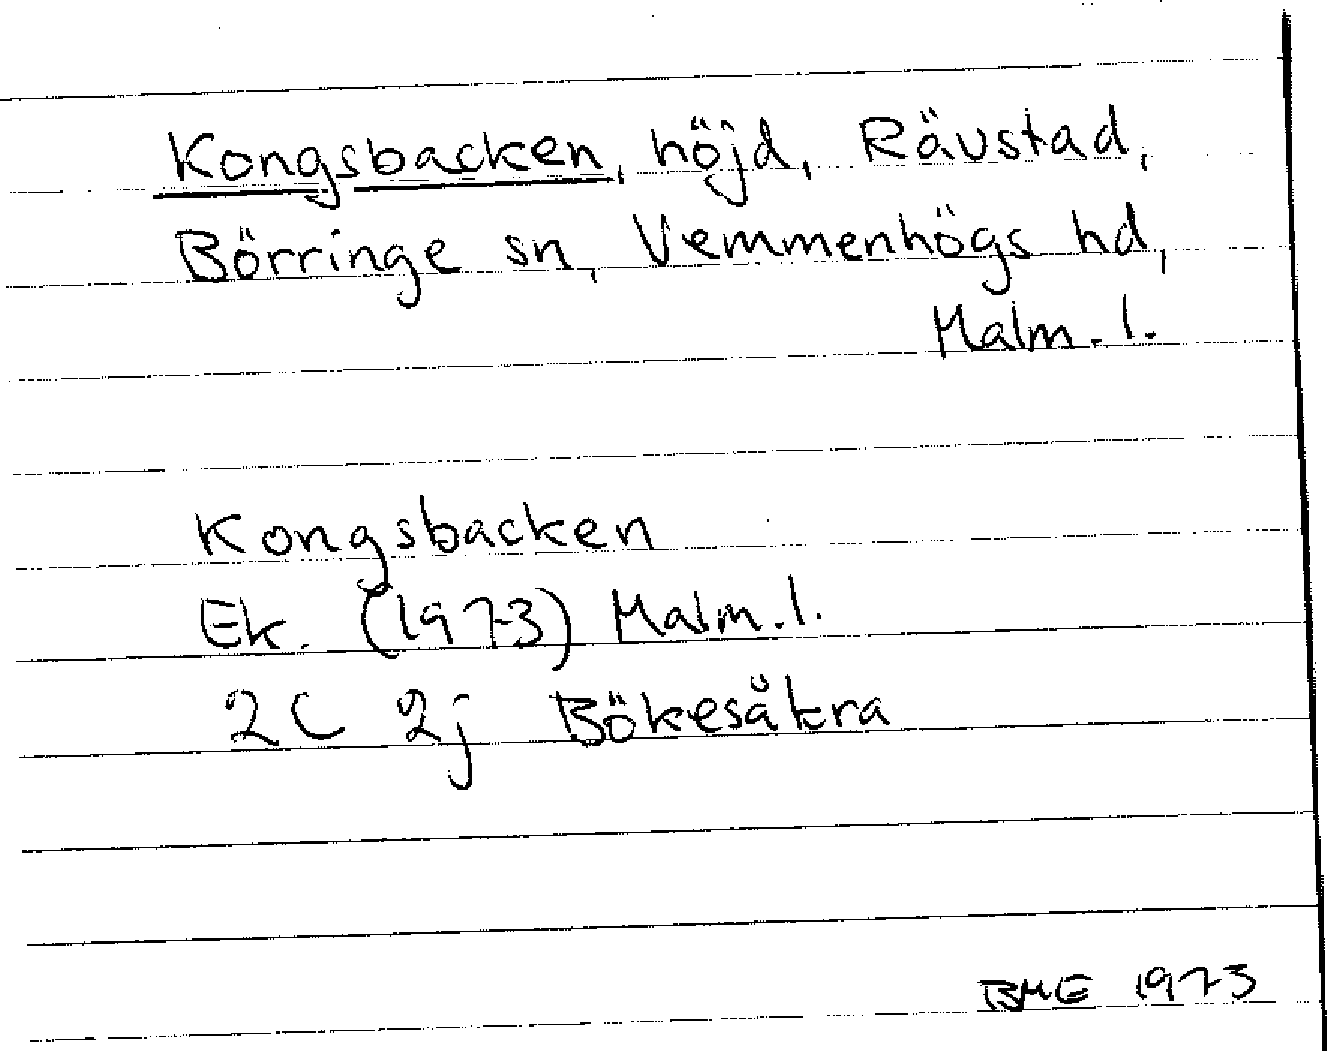 Kongsbacken, höjd, Rävstad,
Börringe sn, Vemmenhögs hd,
Malm. l.
Kongsbacken
Ek. (1973) Malm. l.
2C 2j Bökesåkra
BME 1973